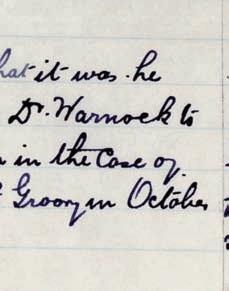 hat it was he
Dr. Warnock to
in the Case of
Groom in October